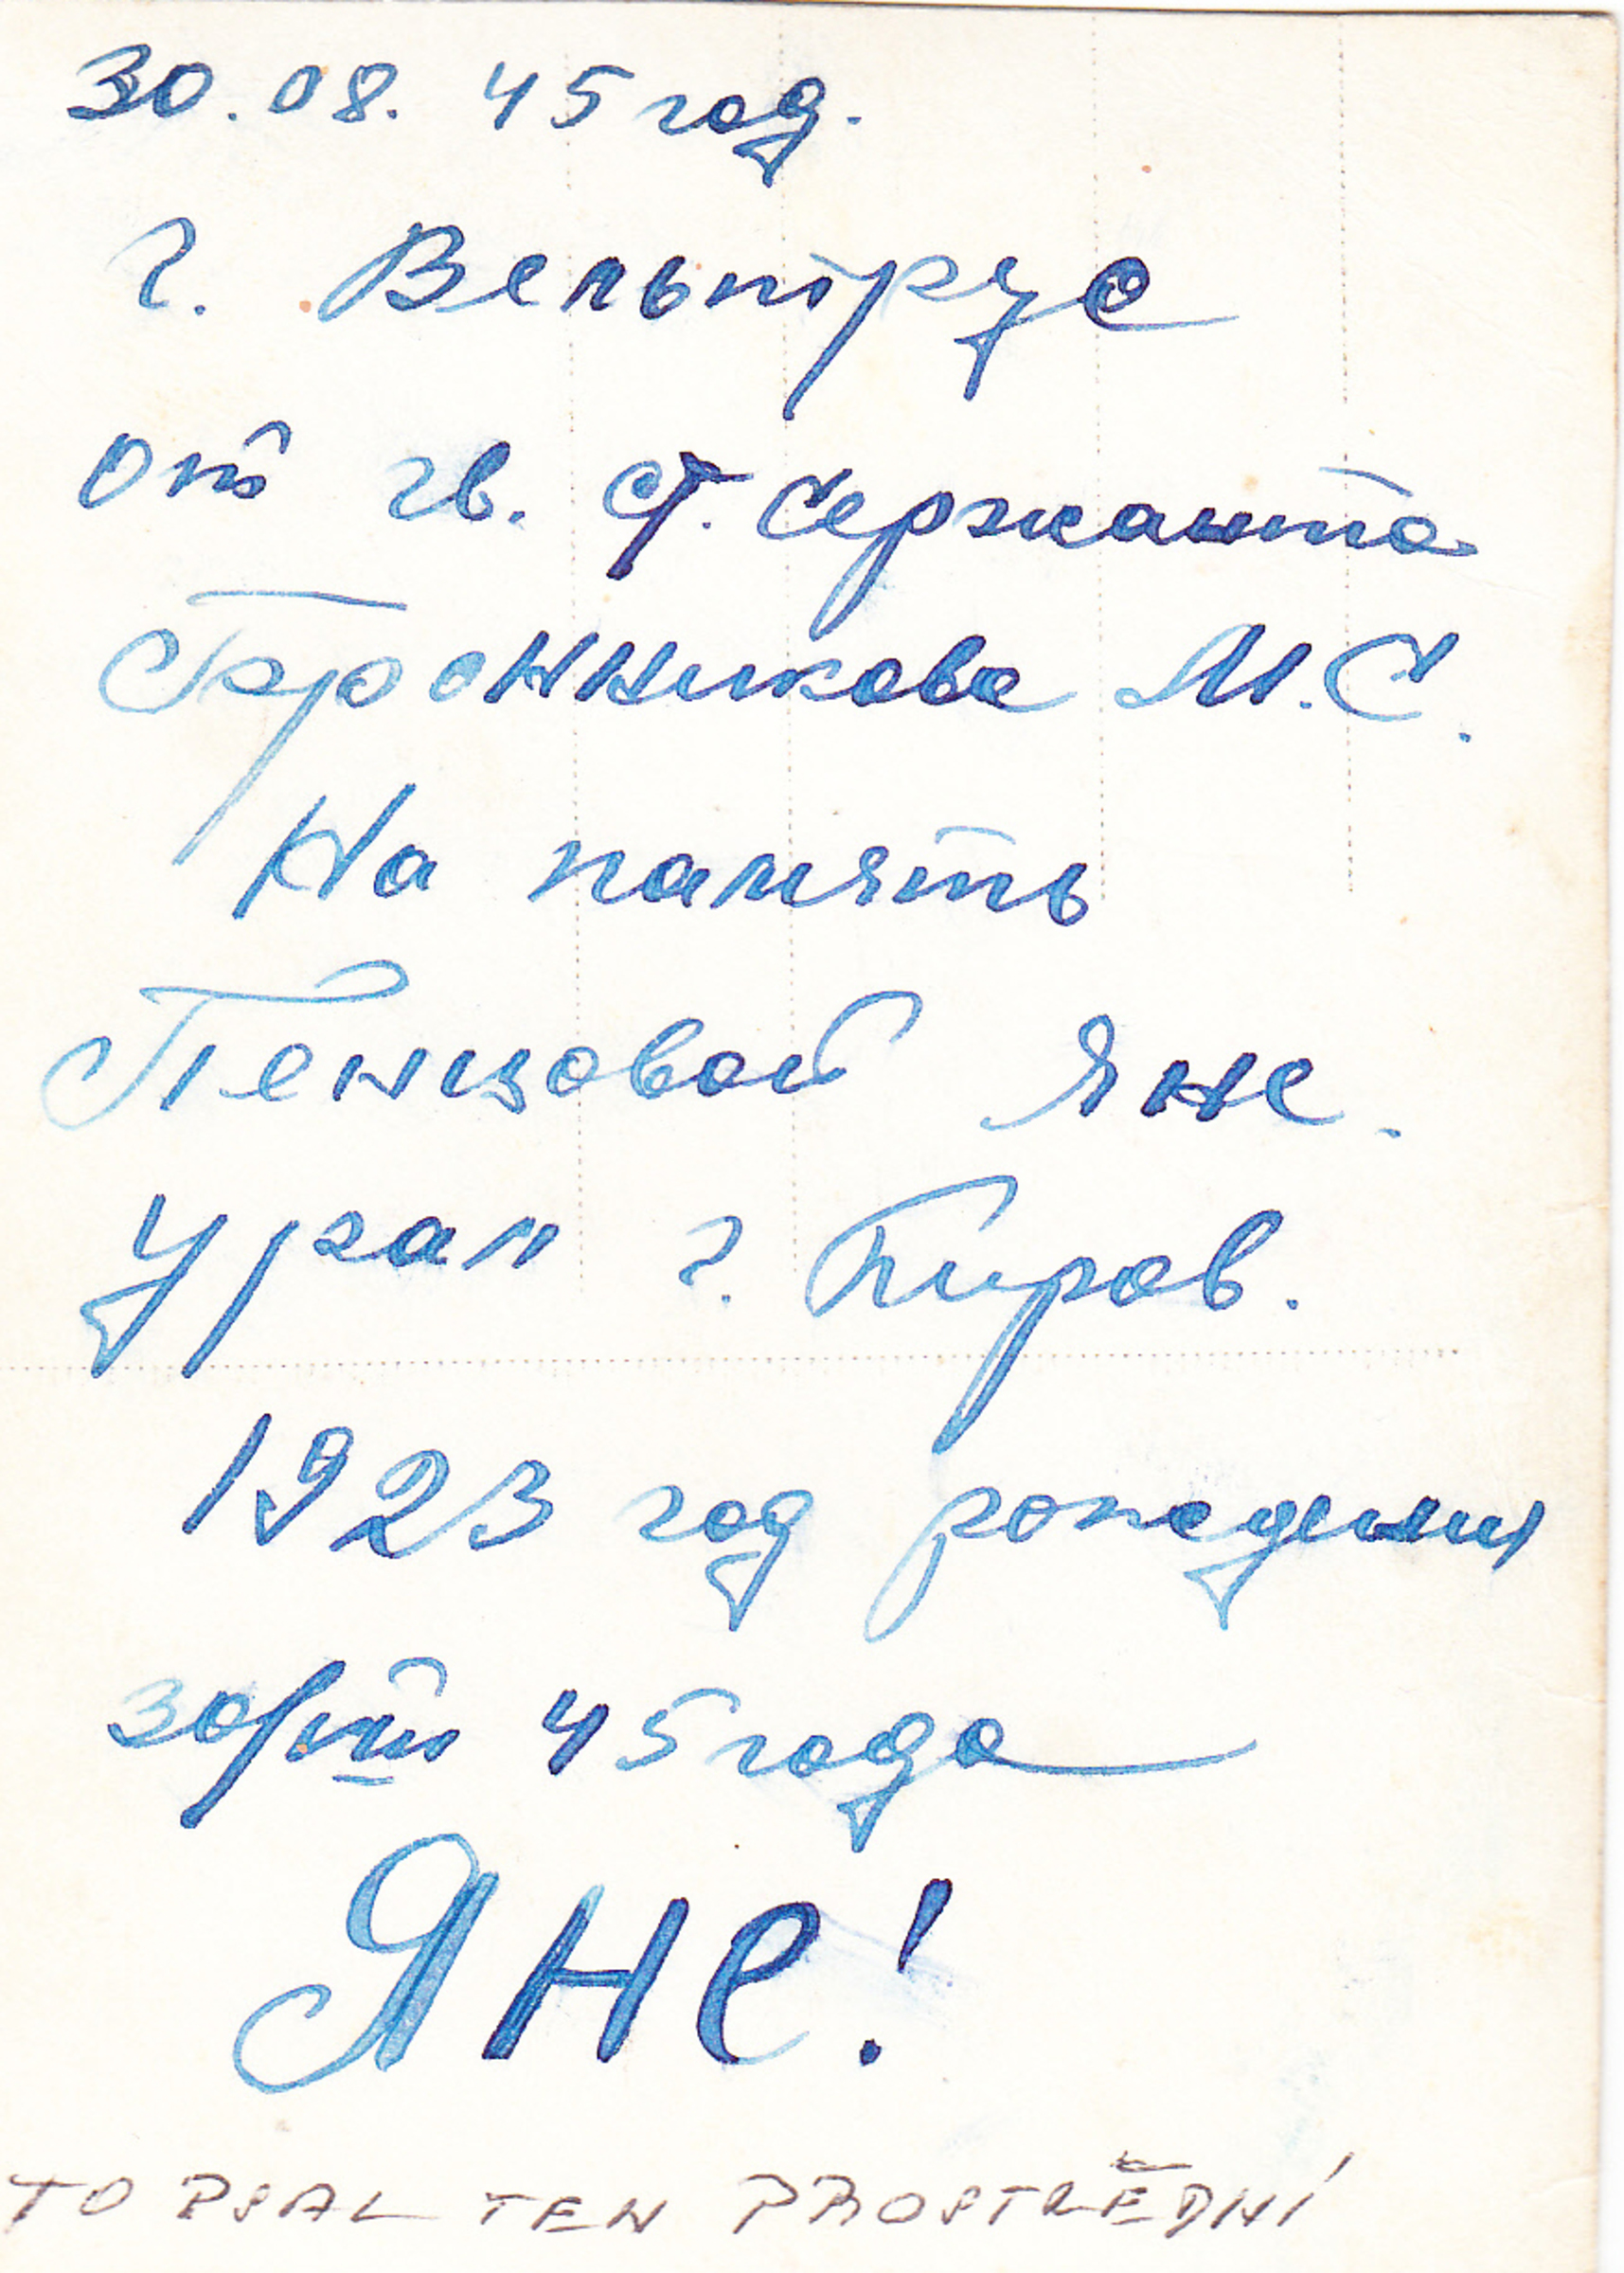 30.08.45 год.
г. Вельтрус
от гв. ст. сержанта
М.С.
На память
Пенцовой Яне.
Урал г. Киров.
1923 год рождения
45 года
Яне!
TO PSAL TEN PROSTŘEDNÍ